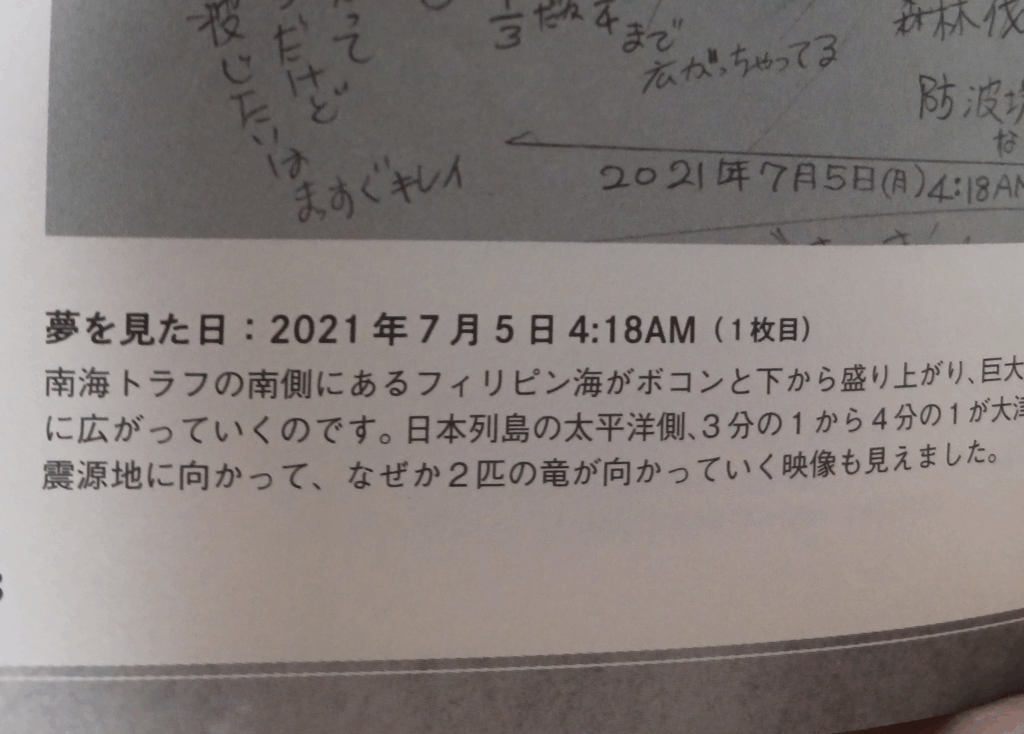 1/3 だか 1/4
まで
広がっちゃってる
森林伐
防波堤
な
って
だけど
波じたいは
まっすぐキレイ
2021年7月5日(月)4:18AM
夢を見た日：2021年7月5日 4:18AM（1枚目）
南海トラフの南側にあるフィリピン海がボコンと下から盛り上がり、巨大
に広がっていくのです。日本列島の太平洋側、3分の1から4分の1が大津
震源地に向かって、なぜか2匹の竜が向かっていく映像も見えました。